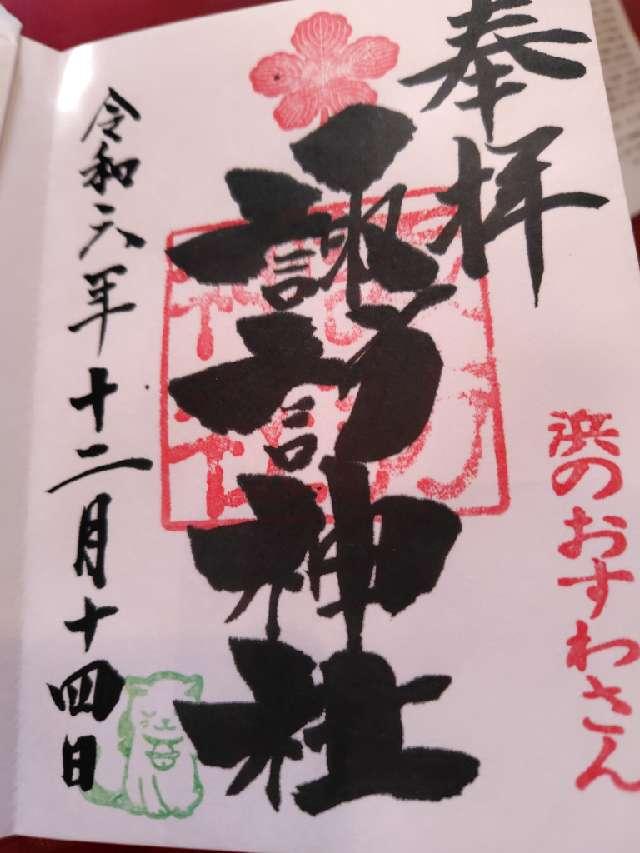 奉拝
浜のおすわさん
諏訪神社
令和六年十二月十四日